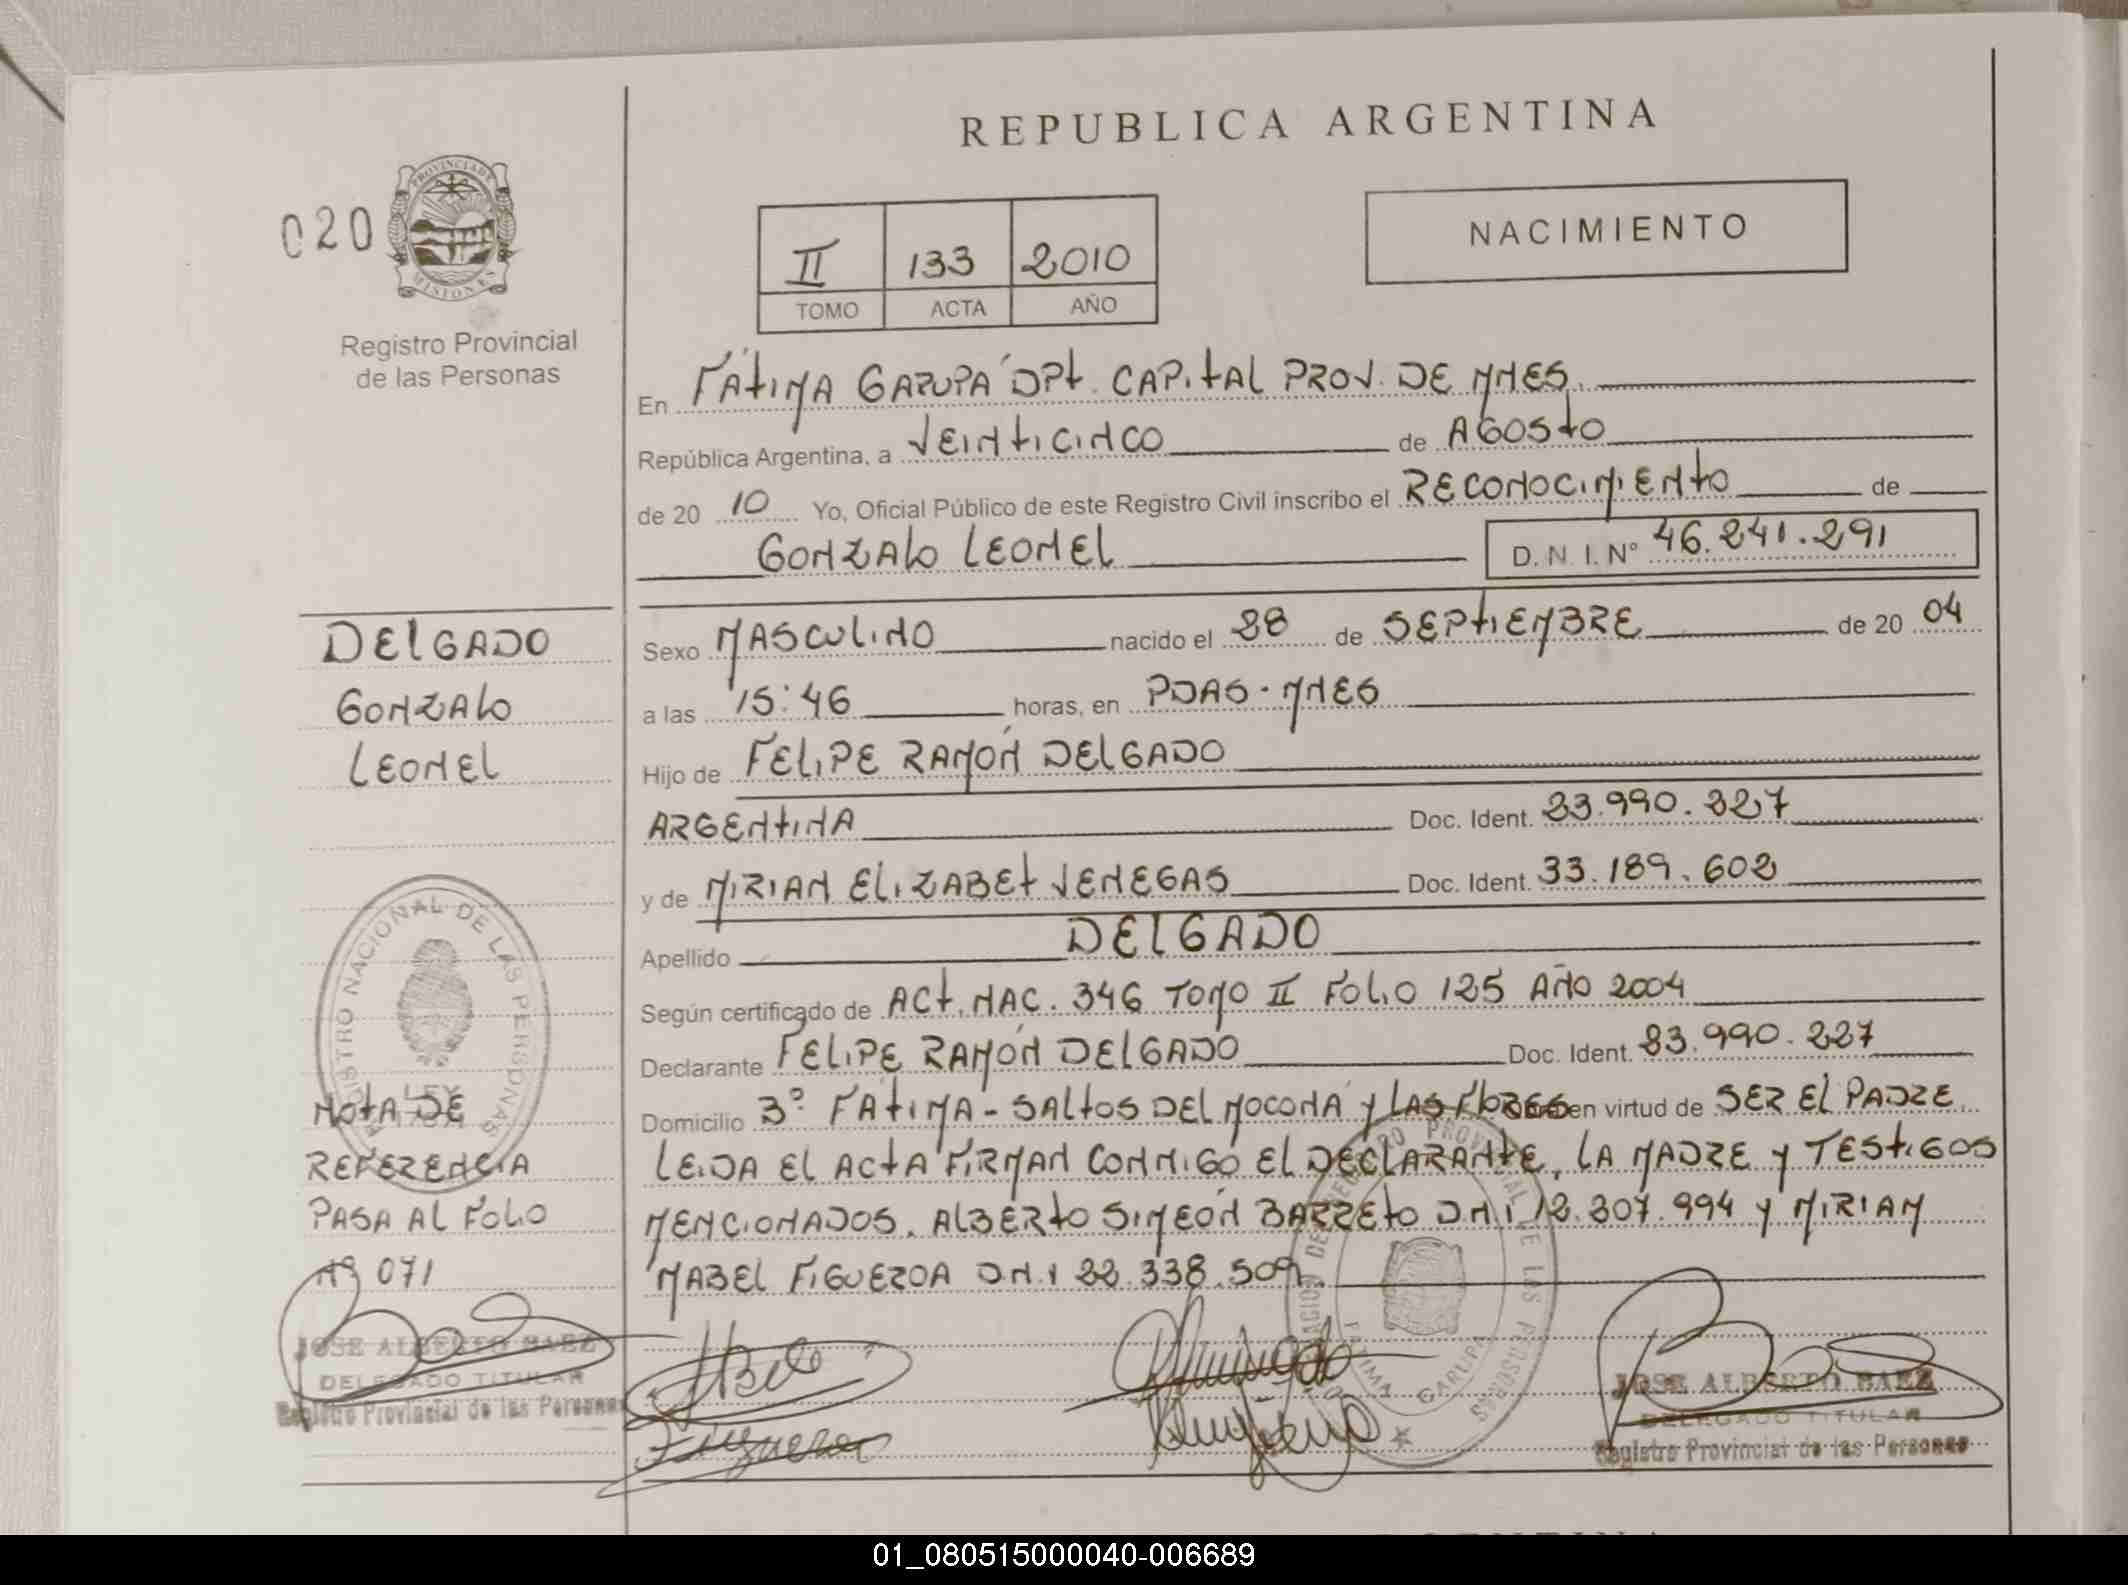 REPUBLICA ARGENTINA
020
PROVINCIA DE MISIONES
Registro Provincial
de las Personas
II 133 2010
TOMO ACTA AÑO
NACIMIENTO
En FÁTIMA GARUPA DPt. CAPITAL PROV. DE MNES.
República Argentina, a VEINTICINCO de AGOSTO
de 20 10 Yo, Oficial Público de este Registro Civil inscribo el RECONOCIMIENTO de
GONZALO LEONEL D. N. I. N° 46.241.291
DELGADO
GONZALO
LEONEL
Sexo MASCULINO nacido el 28 de SEPTIEMBRE de 20 04
a las 15:46 horas, en PDAS - MNES
Hijo de FELIPE RAMÓN DELGADO
ARGENTINA Doc. Ident. 23.990.227
y de MIRIAN ELIZABET VENEGAS Doc. Ident. 33.189.602
Apellido DELGADO
Según certificado de ACT. NAC. 346 TOMO II FOLIO 125 AÑO 2004
Declarante FELIPE RAMÓN DELGADO Doc. Ident. 23.990.227
Domicilio 3° FÁTIMA - SALTOS DEL MOCONA Y LAS FLORES en virtud de SER EL PADRE.
LEIDA EL ACTA FIRMAN CONMIGO EL DECLARANTE, LA MADRE Y TESTIGOS
MENCIONADOS. ALBERTO SIMEÓN BARRETO DNI 12.207.994 Y MIRIAM
MABEL FIGUEROA DNI 22.338.509.
REGISTRO NACIONAL DE LAS PERSONAS
NOTA DE
REFERENCIA
PASA AL FOLIO
N° 071
JOSE ALBERTO BAEZ
DELEGADO TITULAR
Registro Provincial de las Personas
Figueroa
FATIMA GARUPA
JOSE ALBERTO BAEZ
DELEGADO TITULAR
Registro Provincial de las Personas
01_080515000040-006689